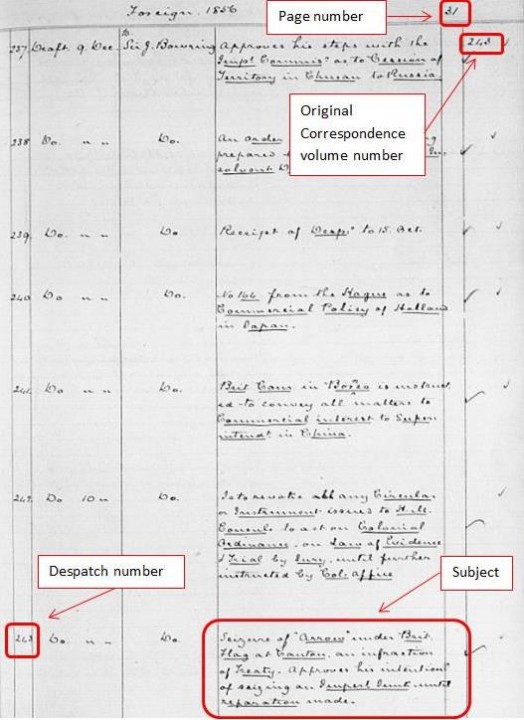 Foreign. 1856
31
Page number
237 Draft 9 Dec. to Sir J. Bowring Approves his steps with the 243
Impl Commisr as to Cession of
Territory in Chusan to Russia.
Original
Correspondence
volume number
238 Do. " " Do. An order
prepared
solvent
239. Do. " " Do. Receipt of Desps to 15 Oct.
240 Do " " Do. No 164 from the Hague as to
Commercial Policy of Holland
in Japan.
241. Do " " Do. Brit Cons in Borneo is instruct
ed to convey all matters of
Commercial interest to Super
intendt in China.
242. Do 10 " Do. Is to revoke all any Circular
or Instrument issued to H.M.
Consuls to act on Colonial
Ordinance on Law of Evidence
& Trial by Jury until further
instructed by Col: Office
Despatch number
Subject
243 Do. " " Do. Seizure of "Arrow" under Brit.
Flag at Canton, an infraction
of Treaty. Approves his intentions
of seizing an Imperl Junk until
reparation made.